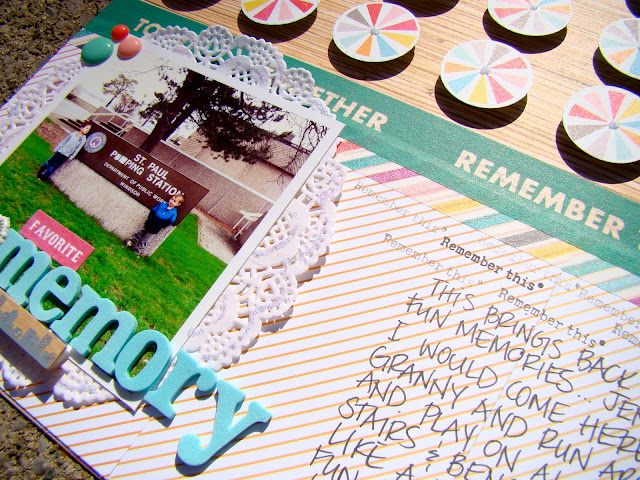 TO
ETHER
REMEMBER
ST. PAUL
PUMPING STATION
DEPARTMENT OF PUBLIC WORKS
WINDSOR
FAVORITE
memory
Remember this*
Remember this*
Remember this*
Remember this*
THIS BRINGS BACK
FUN MEMORIES...
I WOULD COME HERE
GRANNY AND RUN
AND PLAY ON
STAIRS &
LIKE
FUN